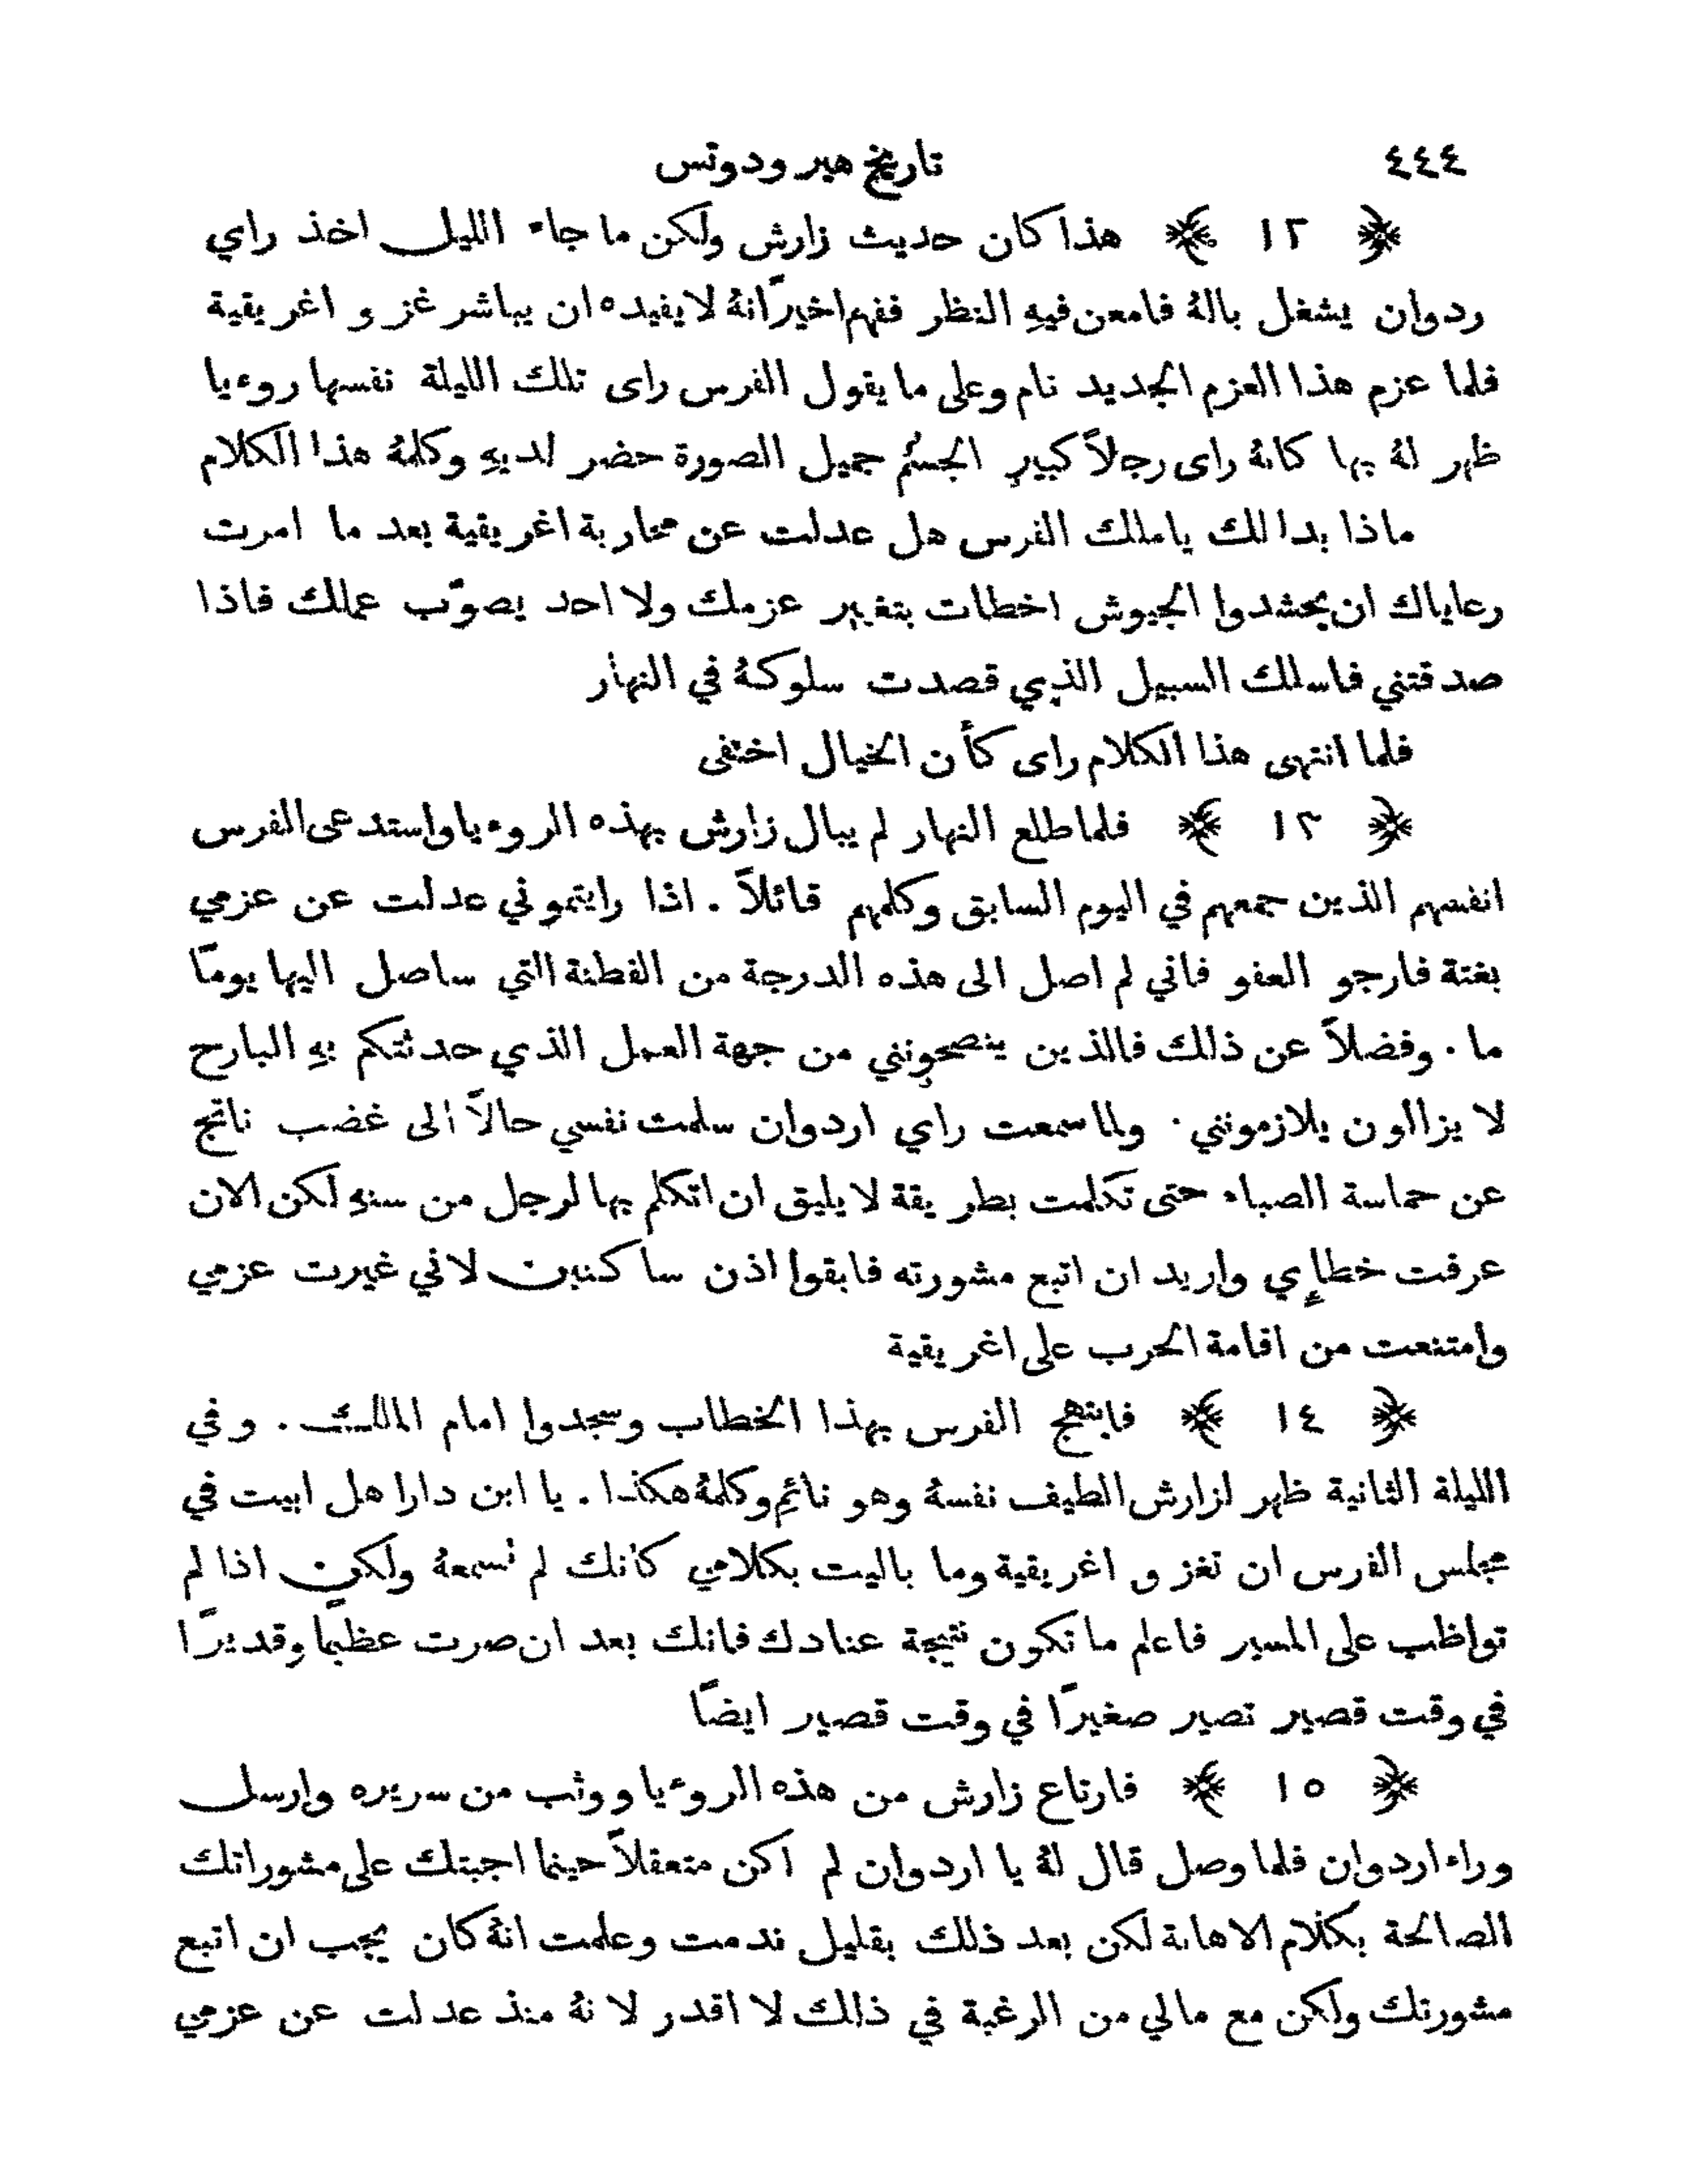 ٤٤٤ تاريخ هيرودوتس
﴿ ١٢ ﴾ هذا كان حديث زارش ولكن ما جاء الليل اخذ راي
ردوان يشغل بالهُ فامعن فيهِ النظر ففهم اخيرًا انهُ لا يفيده ان يباشر غزو اغريقية
فلما عزم هذا العزم الجديد نام وعلى ما يقول الفرس راى تلك الليلة نفسها روءيا
ظهر لهُ بها كانهُ راى رجلاً كبير الجسم جميل الصورة حضر لديهِ وكلمهُ هذا الكلام
ماذا بدا لك يا ملك الفرس هل عدلت عن محاربة اغريقية بعد ما امرت
رعاياك ان يحشدوا الجيوش اخطات بتغيير عزمك ولا احد يصوّب عملك فاذا
صدقتني فاسلك السبيل الذي قصدت سلوكهُ في النهار
فلما انتهى هذا الكلام راى كأن الخيال اختفى
﴿ ١٣ ﴾ فلما طلع النهار لم يبال زارش بهذه الروءيا واستدعى الفرس
انفسهم الذين جمعهم في اليوم السابق وكلمهم قائلاً . اذا رايتموني عدلت عن عزمي
بغتة فارجو العفو فاني لم اصل الى هذه الدرجة من الفطنة التي ساصل اليها يومًا
ما . وفضلاً عن ذلك فالذين ينصحونني من جهة العمل الذي حدثتكم بهِ البارح
لا يزالون يلازمونني . ولما سمعت راي اردوان سلمت نفسي حالاً الى غضب ناتج
عن حماسة الصباء حتى تكلمت بطريقة لا يليق ان اتكلم بها لرجل من سنهِ لكن الان
عرفت خطاءِي واريد ان اتبع مشورته فابقوا اذن ساكنين لاني غيرت عزمي
وامتنعت من اقامة الحرب على اغريقية
﴿ ١٤ ﴾ فابتهج الفرس بهذا الخطاب وسجدوا امام الملك . وفي
الليلة الثانية ظهر لزارش الطيف نفسهُ وهو نائم وكلمهُ هكذا . يا ابن دارا هل ابيت في
مجلس الفرس ان تغزو اغريقية وما باليت بكلامي كانك لم تسمعهُ ولكن اذا لم
تواظب على المسير فاعلم ما تكون نتيجة عنادك فانك بعد ان صرت عظيما وقديرًا
في وقت قصير تصير صغيرًا في وقت قصير ايضًا
﴿ ١٥ ﴾ فارتاع زارش من هذه الروءيا ووثب من سريره وارسل
وراء اردوان فلما وصل قال لهُ يا اردوان لم اكن متعقلاً حينما اجبتك على مشوراتك
الصالحة بكلام الاهانة لكن بعد ذلك بقليل ندمت وعلمت انهُ كان يجب ان اتبع
مشورتك ولكن مع مالي من الرغبة في ذلك لا اقدر لانهُ منذ عدلت عن عزمي